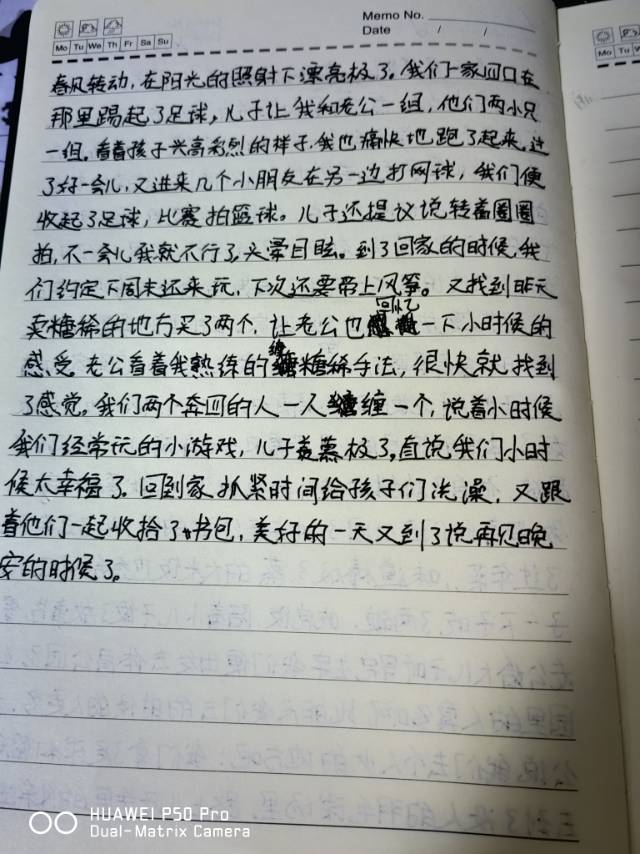 Memo No.
Date / /
Mo Tu We Th Fr Sa Su
春风转动,在阳光的照射下漂亮极了。我们一家四口在
那里踢起了足球,儿子让我和老公一组,他们两小只
一组。看着孩子兴高彩烈的样子,我也痛快地跑了起来,过
了好一会儿,又进来几个小朋友在另一边打网球,我们便
收起了足球,比赛拍篮球。儿子还提议说转着圈圈
拍,不一会儿我就不行了,头晕目眩。到了回家的时候,我
们约定下周末还来玩,下次还要带上风筝。又找到昨天
卖糖稀的地方买了两个,让老公也回忆一下小时候的
感受。老公看着我熟练的缠糖稀手法,很快就找到
了感觉。我们两个奔四的人一人缠一个,说着小时候
我们经常玩的小游戏,儿子羡慕极了,直说我们小时
候太幸福了。回到家抓紧时间给孩子们洗澡,又跟
着他们一起收拾了书包,美好的一天又到了说再见晚
安的时候了。
HUAWEI P50 Pro
Dual-Matrix Camera